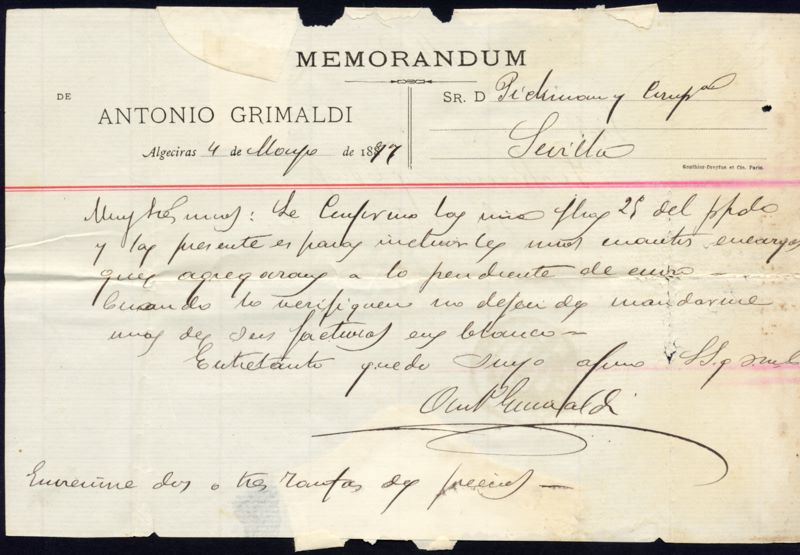 MEMORANDUM
DE
ANTONIO GRIMALDI
Algeciras 4 de Mayo de 1897
SR. D Pickman y Comp.ª
Sevilla
Gauthier-Dreyfus et Cie. Paris.
Muy Srs mios: Le Confirmo la mia fha 25 del ppdo
y la presente es para incluirles unos cuantos encargos
que agregaran a lo pendiente de envio —
Cuando lo verifiquen no dejen de mandarme
una de sus facturas en blanco —
Entretanto quedo suyo afmo
Ant.º Grimaldi
Envienme dos o tres tarifas de precios —